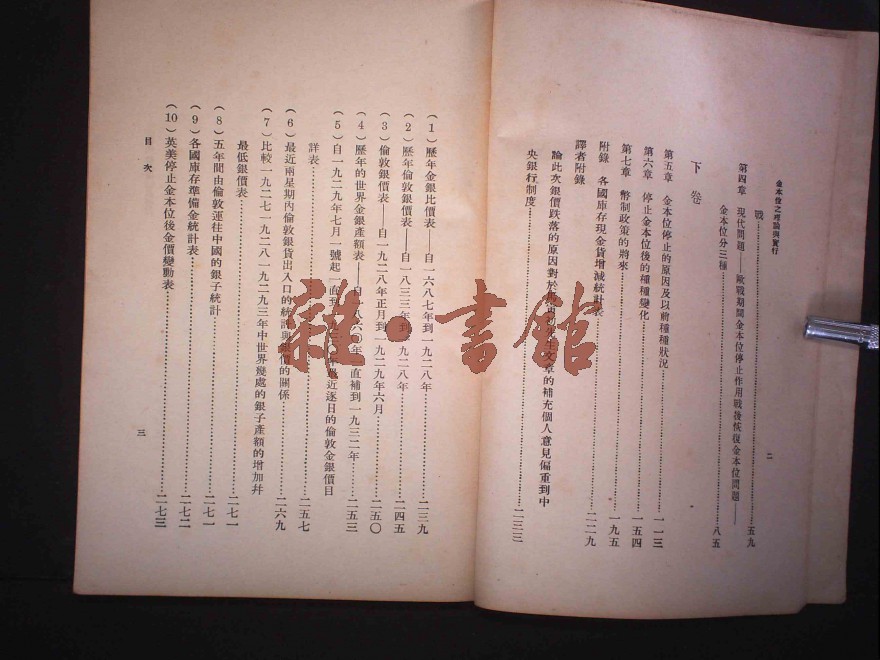 金本位之理論與實行
二
第四章 現代問題——歐戰期間金本位停止作用戰後恢復金本位問題——
戰……五九
金本位分三種……八五
下卷
第五章 金本位停止的原因及以前種種狀況……一一三
第六章 停止金本位後的種種變化……一五四
第七章 幣制政策的將來……一九五
附錄 各國庫存現金貨增減統計表……二二九
譯者附錄
論此次銀價跌落的原因對於 文章的補充個人意見偏重到中
央銀行制度……二三三
(1)歷年金銀比價表——自一六八七年到一九二八年……二三九
(2)歷年倫敦銀價表——自一八三三年到一九二八年……二四五
(3)倫敦銀價表——自一九二八年正月到一九二九年六月……二五〇
(4)歷年的世界金銀產額表——自一八六〇年一直補到一九三二年……二五三
(5)自一九二九年七月一號起一直到 最近逐日的倫敦金銀價目
詳表……二五七
(6)最近兩星期內倫敦銀貨出入口的統計與銀價的關係……二六九
(7)比較一九二七一九二八一九二九三年中世界幾處的銀子產額的增加幷
最低銀價表……二七一
(8)五年間由倫敦運往中國的銀子統計……二七一
(9)各國庫存準備金統計表……二七二
(10)英美停止金本位後金價變動表……二七三
目次
三
雜·書館